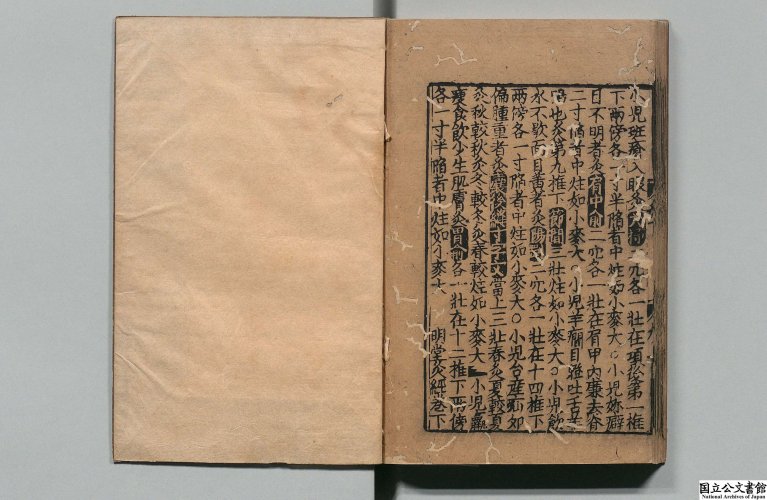 小児斑瘡入眼灸 二穴各一壯在項後第一椎
下兩傍各一寸半陥者中炷如小麥大○小児疳癖
目不明者灸肩中俞二穴各一壯在肩甲内廉去脊
二寸陥者中炷如小麥大○小児羊癇目瞪吐舌羊
鳴也灸第九推下節間三壯炷如小麥大○小児飲
水不歇面目黄者灸陽 二穴各一壯在十四推下
兩傍各一寸陥者中炷如小麥大○小児 如
偏腫重者灸 後 當上三壯春灸夏較夏
灸秋較秋灸冬較冬灸春較炷如小麥大 小児羸
瘦食飲少生肌膚灸胃俞各一壯在十二推下兩傍
各一寸半陥者中炷如小麥大 明堂灸經巻下
国立公文書館
National Archives of Japan